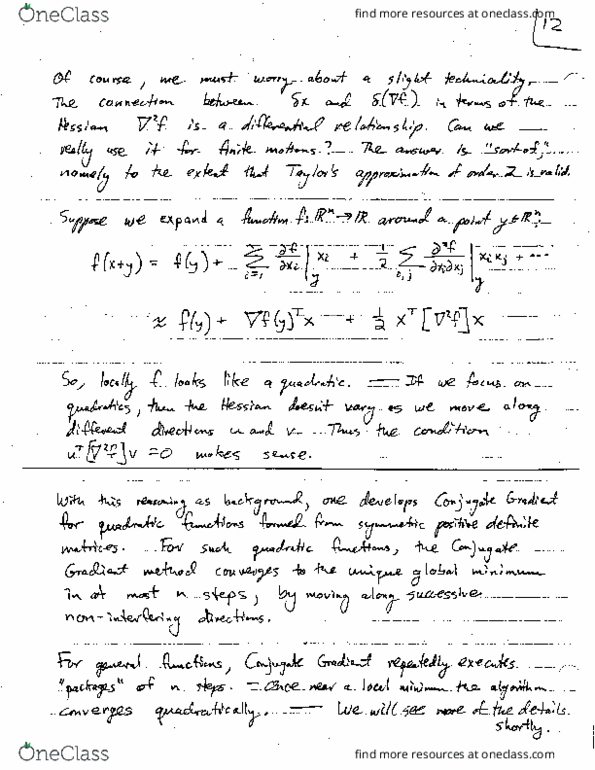 OneClass
find more resources at oneclass.com
12
Of course, we must worry about a slight technicality.
The connection between δx and δ(∇f) in terms of the
Hessian ∇²f is a differential relationship. Can we
really use it for finite motions? The answer is "sort of,"
namely to the extent that Taylor's approximation of order 2 is valid.
Suppose we expand a function f: ℝⁿ → ℝ around a point y ∈ ℝⁿ:
f(x+y) = f(y) + Σ_{i=1}^{n} ∂f/∂xᵢ |_y xᵢ + 1/2 Σ_{i,j} ∂²f/∂xᵢ∂xⱼ |_y xᵢxⱼ + ...
≈ f(y) + ∇f(y)ᵀx + 1/2 xᵀ[∇²f]x
So, locally f looks like a quadratic. — If we focus on
quadratics, then the Hessian doesn't vary as we move along
different directions u and v. Thus the condition
uᵀ[∇²f]v = 0 makes sense.
With this reasoning as background, one develops Conjugate Gradient
for quadratic functions formed from symmetric positive definite
matrices. For such quadratic functions, the Conjugate
Gradient method converges to the unique global minimum
in at most n steps, by moving along successive
non-interfering directions.
For general functions, Conjugate Gradient repeatedly executes
"packages" of n steps. — Once near a local minimum the algorithm
converges quadratically. — We will see more of the details
shortly.
OneClass
find more resources at oneclass.com